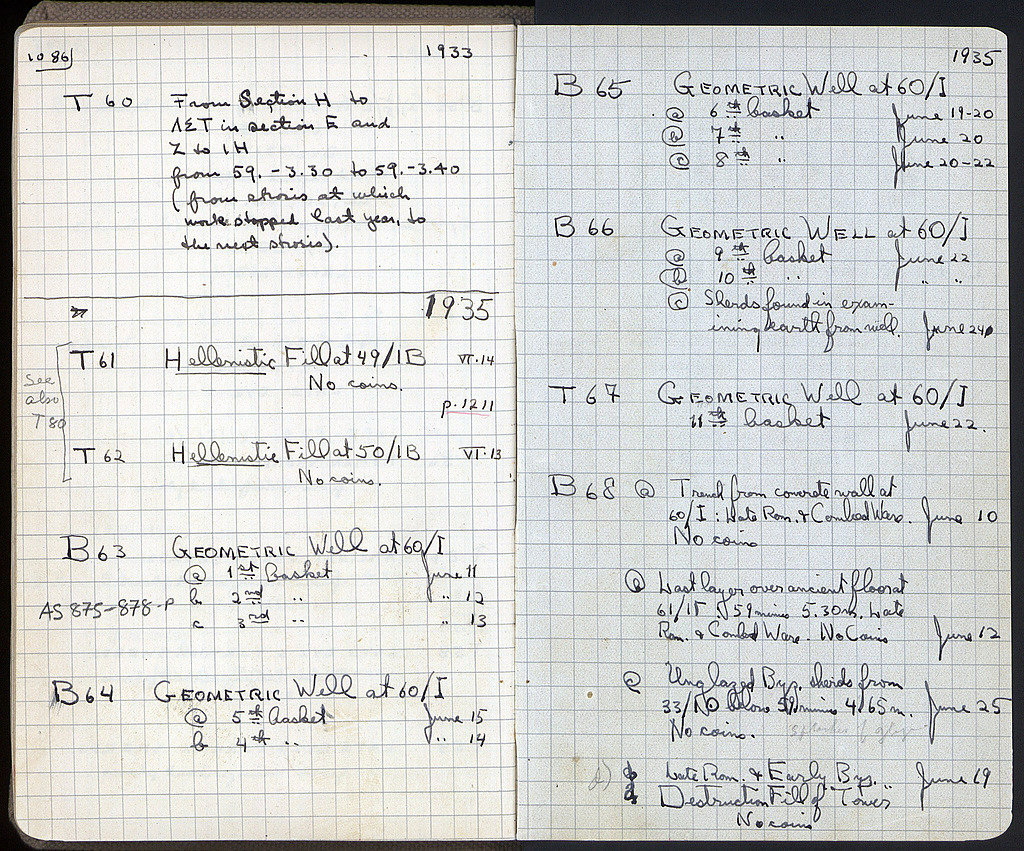 1086
1933
T 60 From Section H to
ΛΣΤ in section E and
Z to IH
from 59. -3.30 to 59. -3.40
(from strosis at which
work stopped last year, to
the next strosis).
1935
See also T 80
T 61 Hellenistic Fill at 49/IB VI.14
No coins.
p. 1211
T 62 Hellenistic Fill at 50/IB VI.13
No coins.
B 63 GEOMETRIC Well at 60/I
ⓐ 1st Basket June 11
b 2nd " " 12
AS 875-878-P
c 3rd " " 13
B 64 GEOMETRIC Well at 60/I
ⓐ 5th Basket June 15
b 4th " " 14
1935
B 65 GEOMETRIC Well at 60/I
ⓐ 6th basket June 19-20
ⓑ 7th " June 20
ⓒ 8th " June 20-22
B 66 GEOMETRIC WELL at 60/I
ⓐ 9th basket June 22
ⓑ 10th " " "
ⓒ Sherds found in exam-
ining earth from well. June 24
T 67 GEOMETRIC Well at 60/I
11th basket June 22.
B 68 ⓐ Trench from concrete wall at
60/I: Late Rom. & Combed Ware. June 10
No coins
ⓑ Last layer over ancient floor at
61/IE 59 minus 5.30m. Late
Rom. & Combed Ware. No Coins June 12
ⓒ Unglazed Byz. sherds from
33/ΝΘ below 59 minus 4.65m. June 25
No coins.
d) Late Rom. & Early Byz. June 19
Destruction Fill of "Tower"
No coins